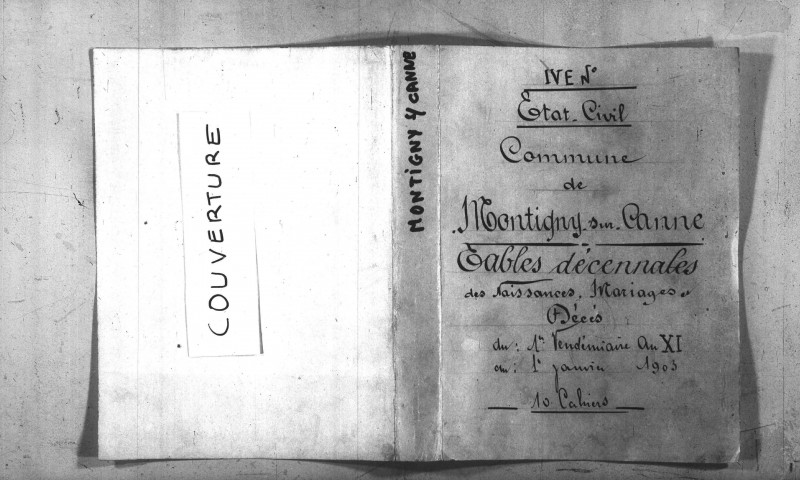 COUVERTURE
MONTIGNY S/ CANNE
IVE N°
Etat-Civil
Commune
de
Montigny-sur-Canne
Tables décennales
des Naissances, Mariages,
Décès
du : 1er Vendémiaire An XI
au : 1er janvier 1903
10 Cahiers